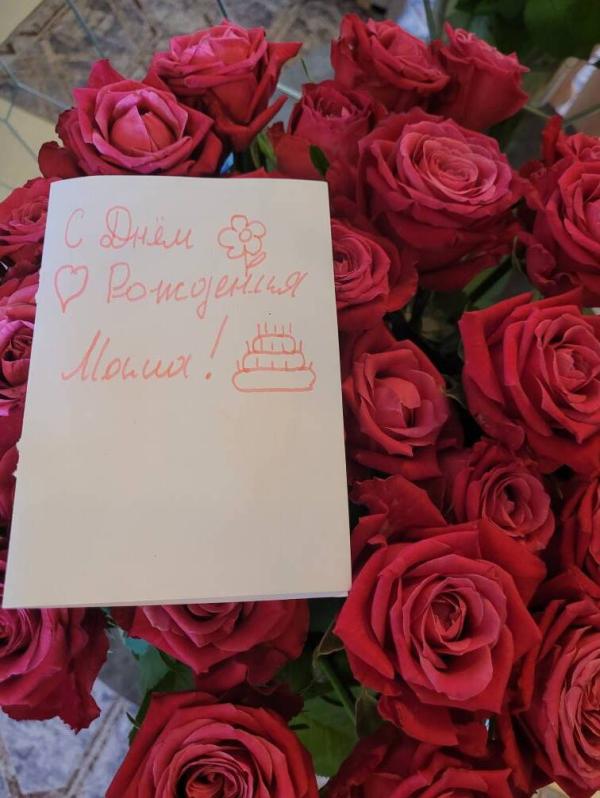 С Днём
Рождения
Мама!